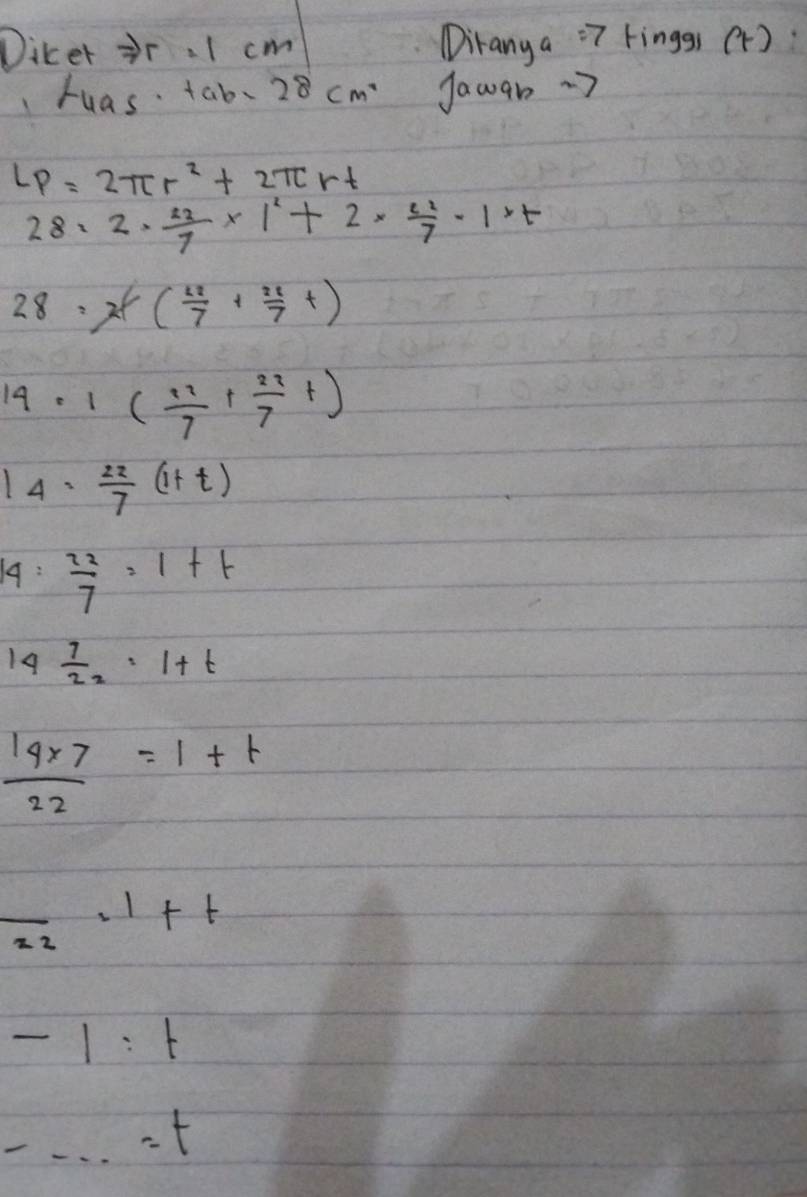 Diket ⇒ r = 1 cm
Luas . tab = 28 cm²
Ditanya => tinggi (t) :
Jawab ->
LP = 2πr² + 2π rt
28 = 2 × 22/7 × 1² + 2 × 22/7 × 1 × t
28 = 2 (22/7 + 22/7 t)
14 = 1 (22/7 + 22/7 t)
14 = 22/7 (1+ t)
14 : 22/7 = 1 + t
14 7/22 = 1 + t
14 × 7 / 22 = 1 + t
— / 22 = 1 + t
- 1 = t
- .... = t